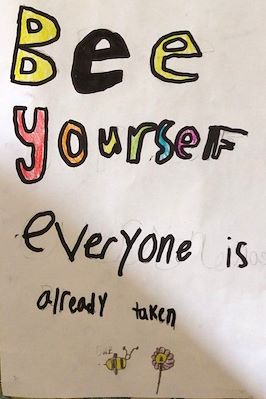 Bee
yourself
everyone is
already taken